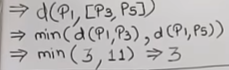 ⇒ d(P1, [P3, P5])
⇒ min(d(P1,P3), d(P1,P5))
⇒ min(3, 11) ⇒ 3